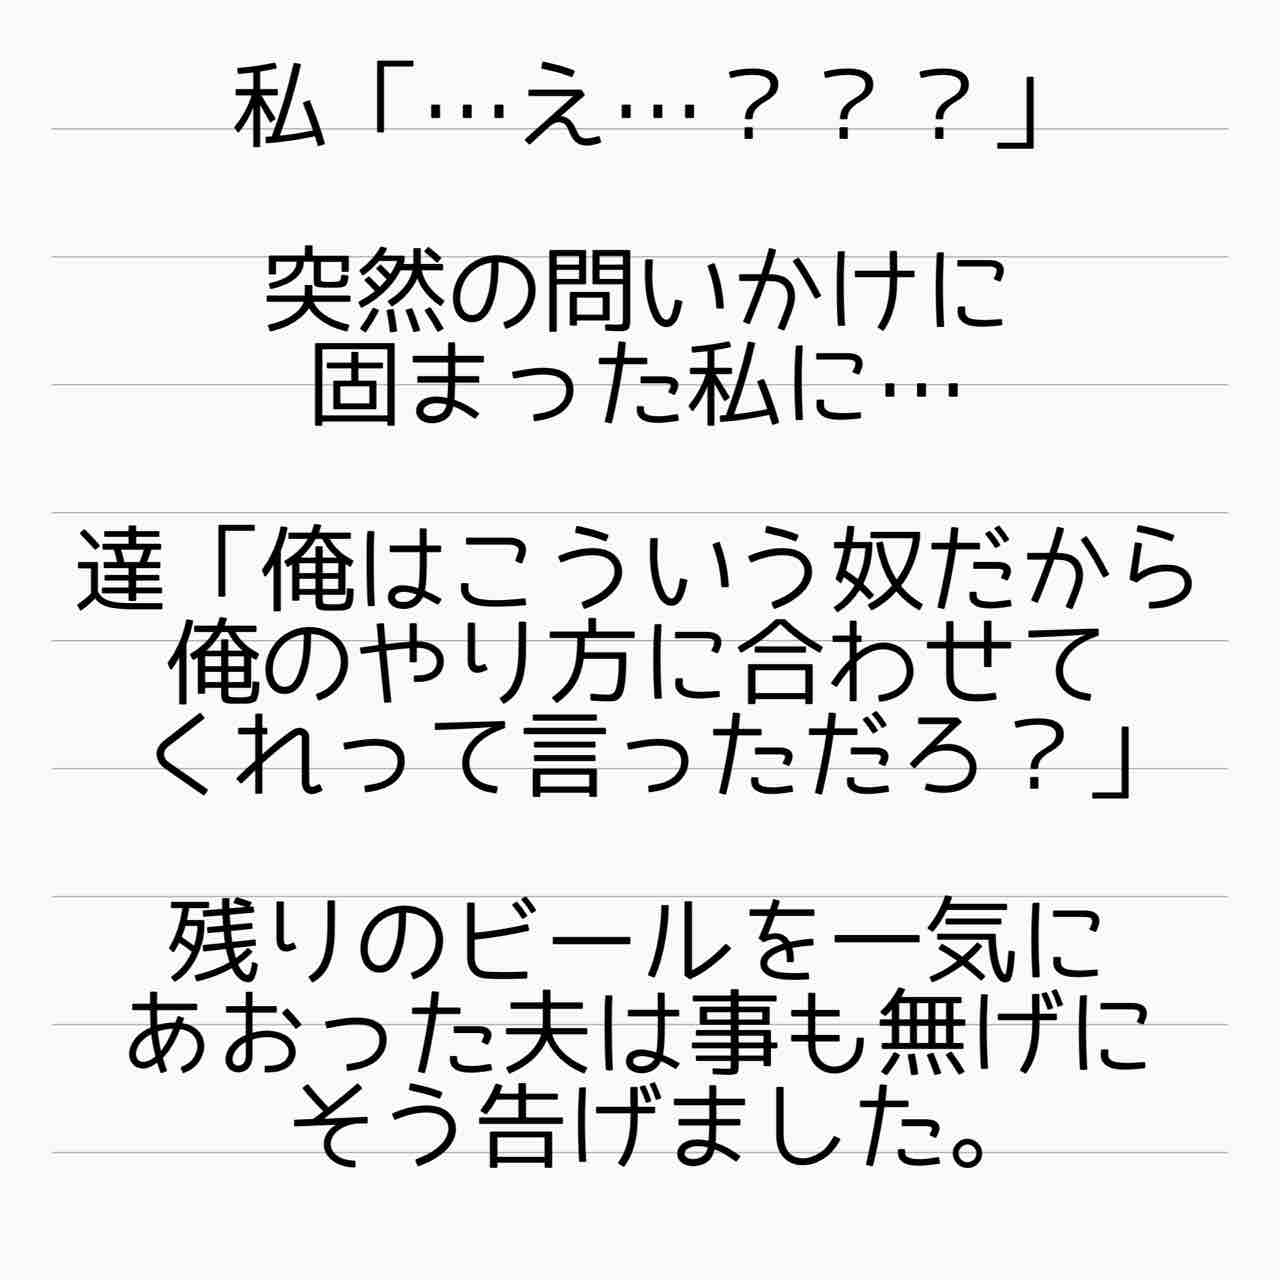 私「…え…？？？」
突然の問いかけに
固まった私に…
達「俺はこういう奴だから
俺のやり方に合わせて
くれって言っただろ？」
残りのビールを一気に
あおった夫は事も無げに
そう告げました。